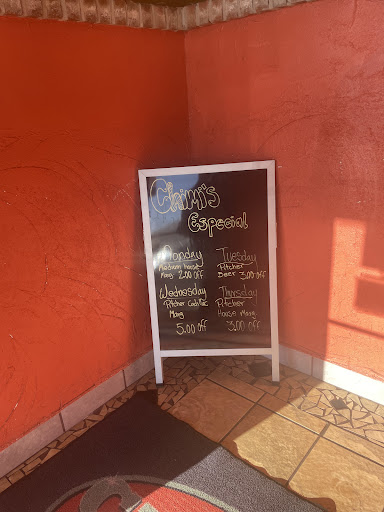 Chimi's
Especial
Monday
Medium house
Marg 2.00 off
Tuesday
Pitcher
Beer 3.00 off
Wednesday
Pitcher Cadillac
Marg
5.00 off
Thursday
Pitcher
House Marg
3.00 off